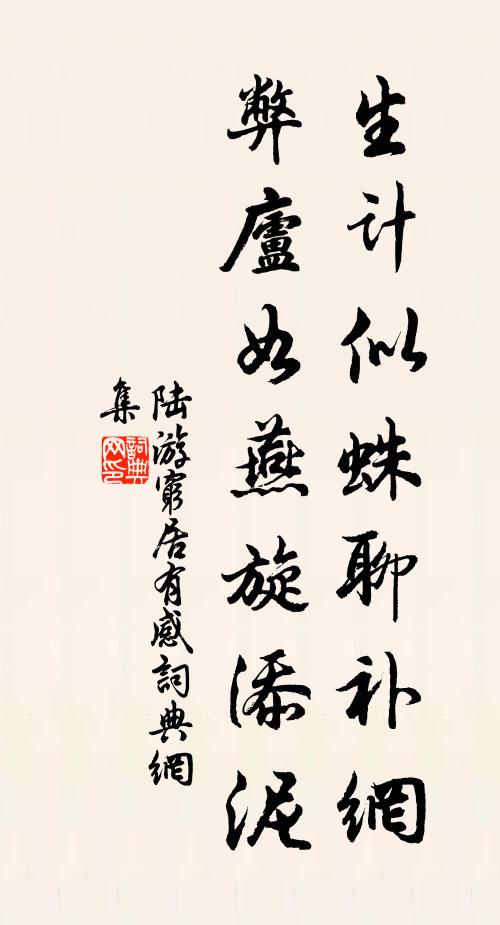 生計似蛛聊补網
弊廬如燕旋添泥
陆游窮居有感詞典網
集
詞典
网印